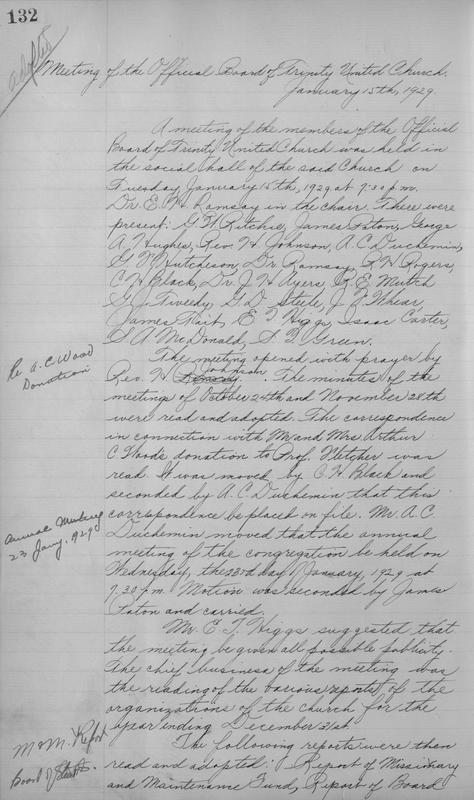 132
adopted
Meeting of the Official Board of Trinity United Church.
January 15th, 1929.
A meeting of the members of the Official
Board of Trinity United Church was held in
the social hall of the said Church on
Tuesday January 15th, 1929 at 7:30 p.m.
Dr. E. H. Ramsay in the chair. There were
present: G. W. Ritchie, James Paton, George
A. Hughes, Rev. H. Johnson, A. C. Duchemin,
G. W. Hutcheson, Dr. Ramsay, R. H. Rogers,
C. H. Black, Dr. J. H. Ayers, R. E. Mutch
G. J. Tweedy, G. D. Steele, J. J. Whear,
James Tait, E. T. Higgs, Isaac Carter,
S. A. McDonald, S. F. Green.
The meeting opened with prayer by
Re A. C. Wood
Donation
Rev. H. Johnson. The minutes of the
meetings of October 24th and November 28th
were read and adopted. The correspondence
in connection with Mr and Mrs Arthur
C Woods donation to Prof. Fletcher was
read. It was moved by C. H. Black and
seconded by A. C. Duchemin that this
Annual Meeting
23 Jany. 1929
correspondence be placed on file. Mr. A. C.
Duchemin moved that the annual
meeting of the congregation be held on
Wednesday, the 23rd day of January, 1929 at
7.30 p.m. Motion was seconded by James
Paton and carried.
Mr. E. T. Higgs suggested that
the meeting be given all possible publicity.
The chief business of the meeting was
the reading of the various reports of the
organizations of the church for the
year ending December 31st.
M & M. Report
Board of
The following reports were then
read and adopted: Report of Missionary
and Maintenance Fund, Report of Board